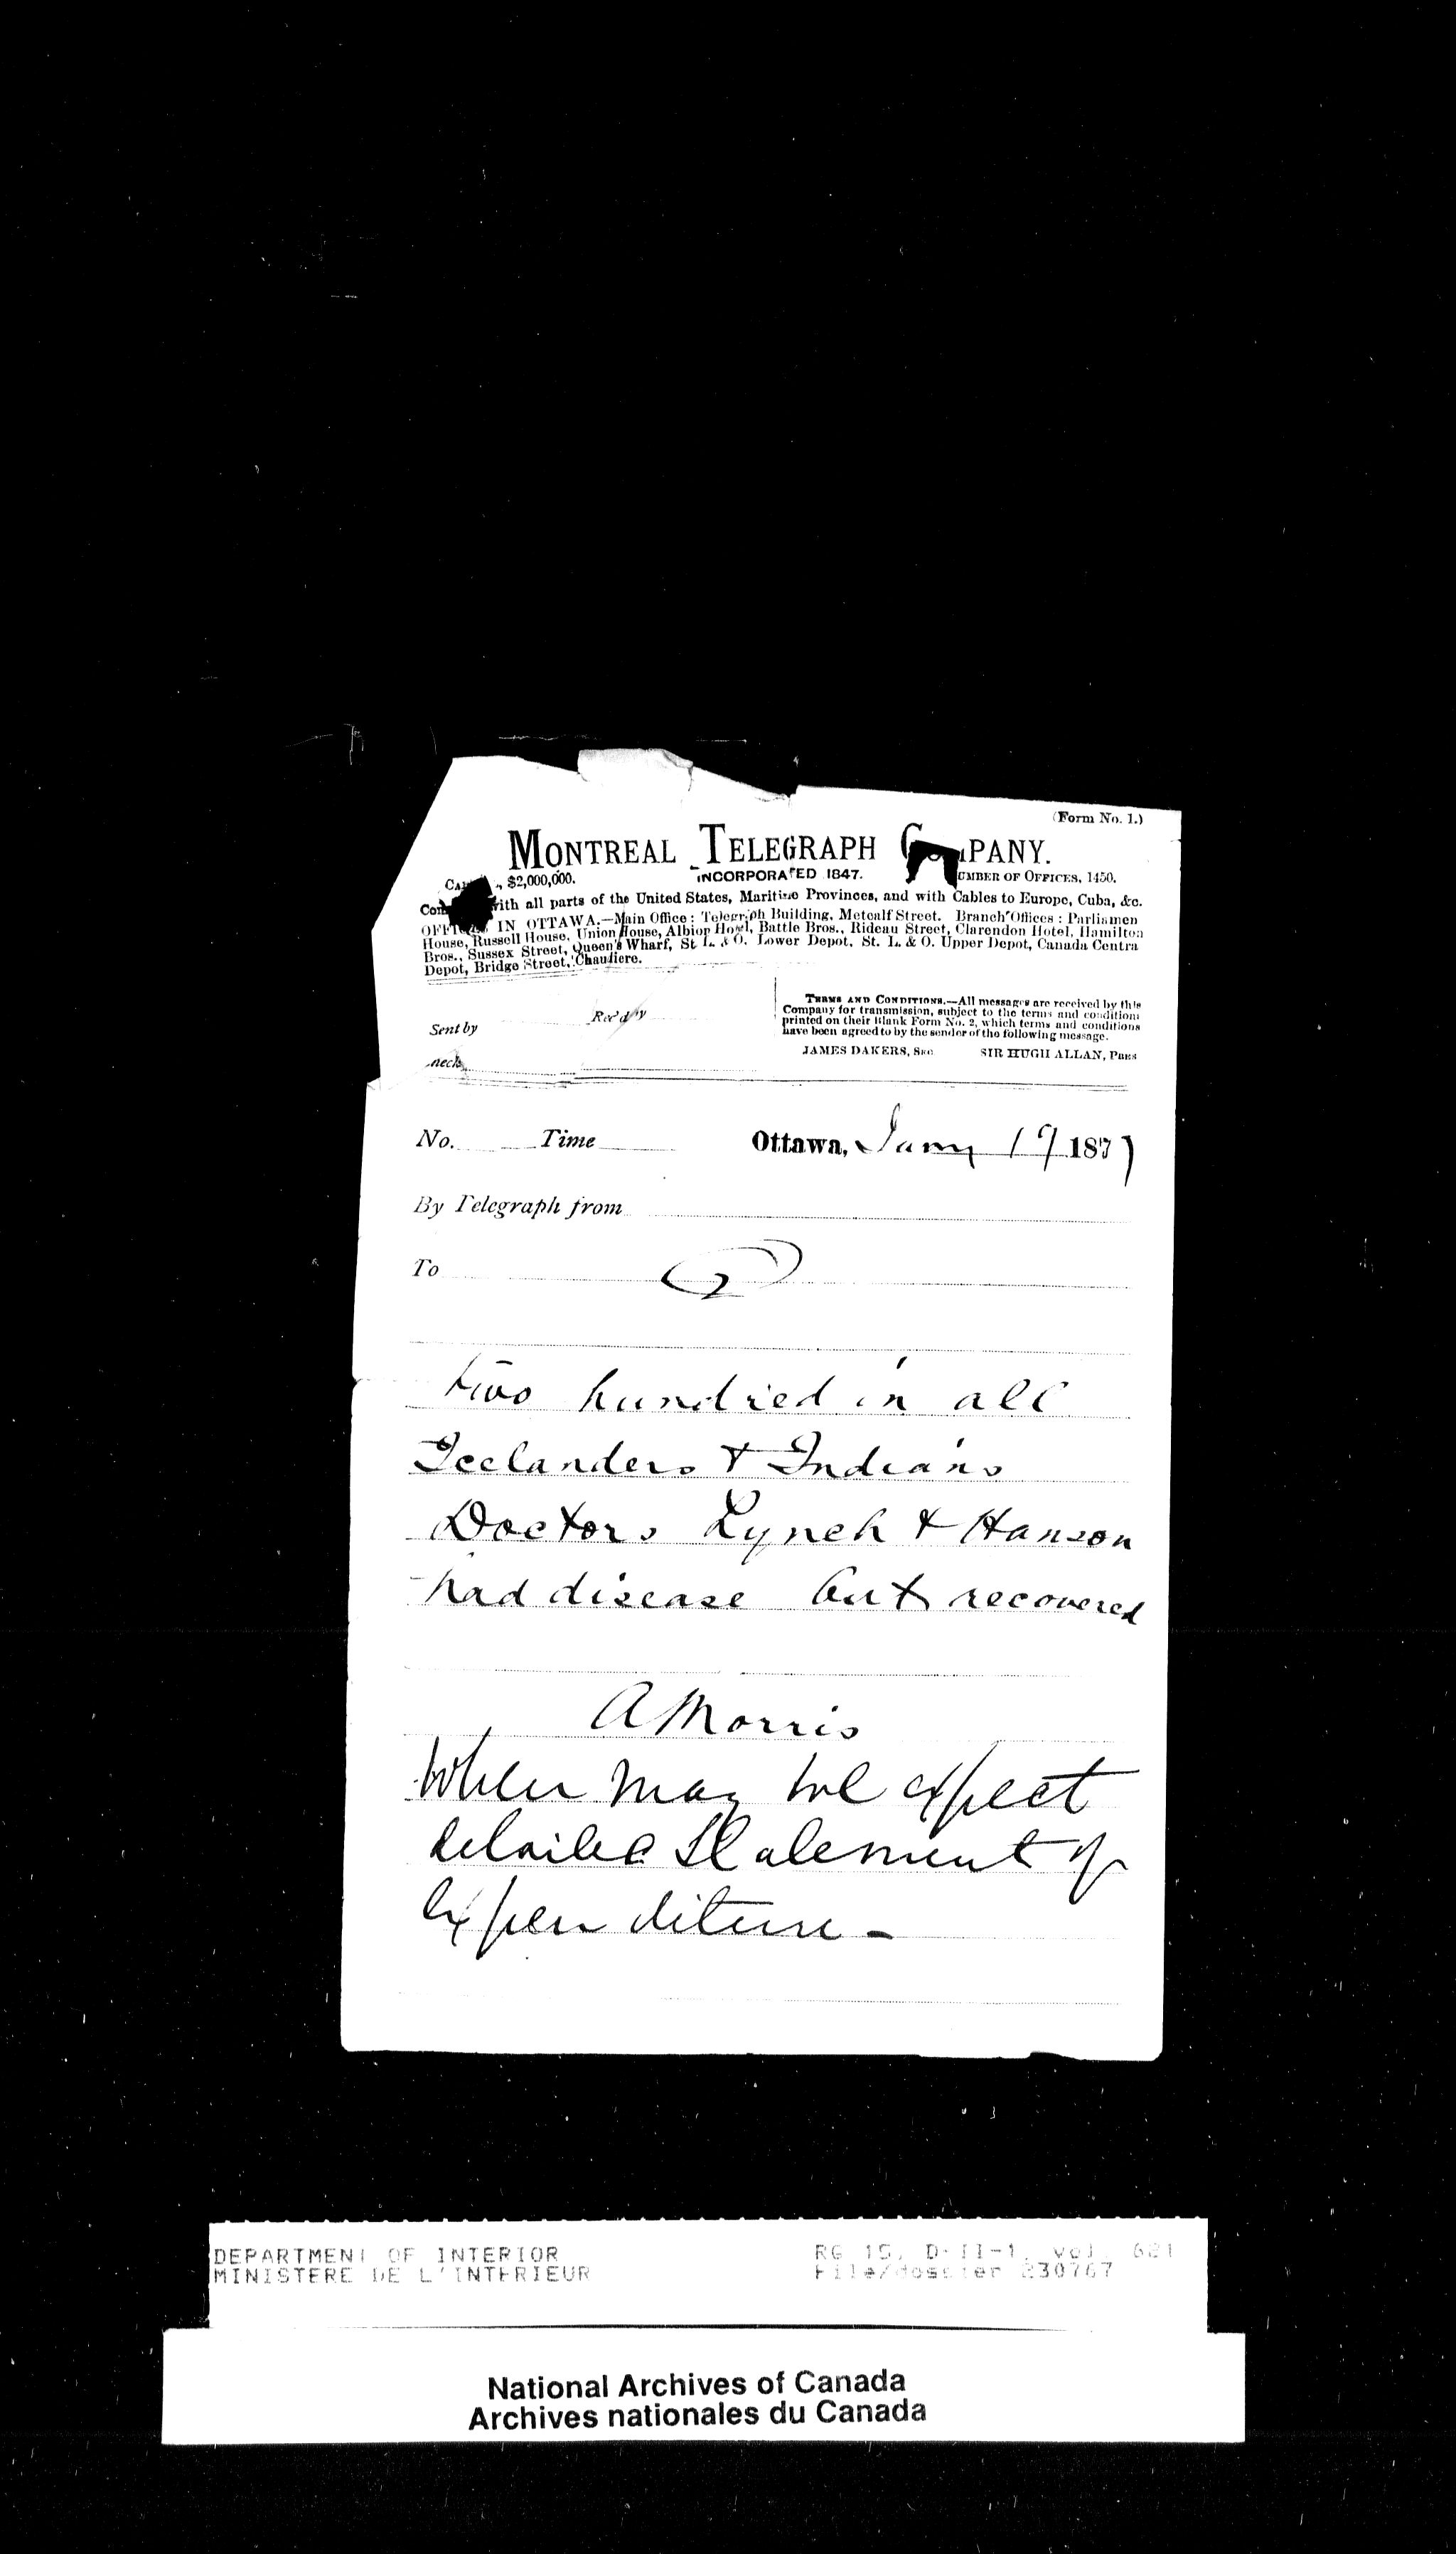 (Form No. 1.)
MONTREAL TELEGRAPH COMPANY.
INCORPORATED 1847.
$2,000,000. NUMBER OF OFFICES, 1450.
with all parts of the United States, Maritime Provinces, and with Cables to Europe, Cuba, &c.
OFFICES IN OTTAWA.—Main Office: Telegraph Building, Metcalf Street. Branch Offices: Parliamen
House, Russell House, Union House, Albion Hotel, Battle Bros., Rideau Street, Clarendon Hotel, Hamilton
Bros., Sussex Street, Queen's Wharf, St L. & O. Lower Depot, St. L. & O. Upper Depot, Canada Centra
Depot, Bridge Street, Chaudiere.
TERMS AND CONDITIONS.—All messages are received by this
Company for transmission, subject to the terms and conditions
printed on their Blank Form No. 2, which terms and conditions
have been agreed to by the sender of the following message.
JAMES DAKERS, SEC. SIR HUGH ALLAN, PRES
Sent by Rec'd by
heck
No. Time Ottawa, Jany 19 1877
By Telegraph from
To 2
two hundred in all
Icelanders & Indians
Doctors Lynch & Hanson
had disease but recovered
A Morris
When may we expect
detailed Statement of
Expenditure -
DEPARTMENT OF INTERIOR RG 15, D-II-1, vol. 621
MINISTERE DE L'INTERIEUR File/dossier 230767
National Archives of Canada
Archives nationales du Canada